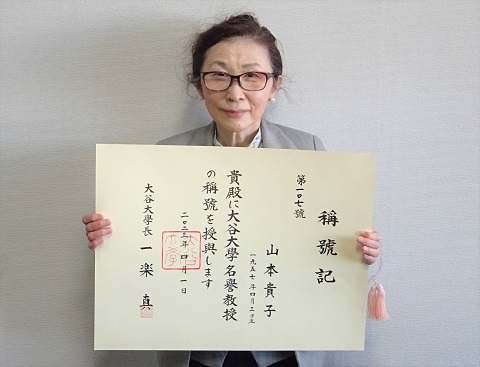 第一〇七號
稱號記
山本貴子
一九五七年四月三十日生
貴殿に大谷大學名譽教授
の稱號を授與します
二〇二三年四月一日
大谷大學長 一楽 真